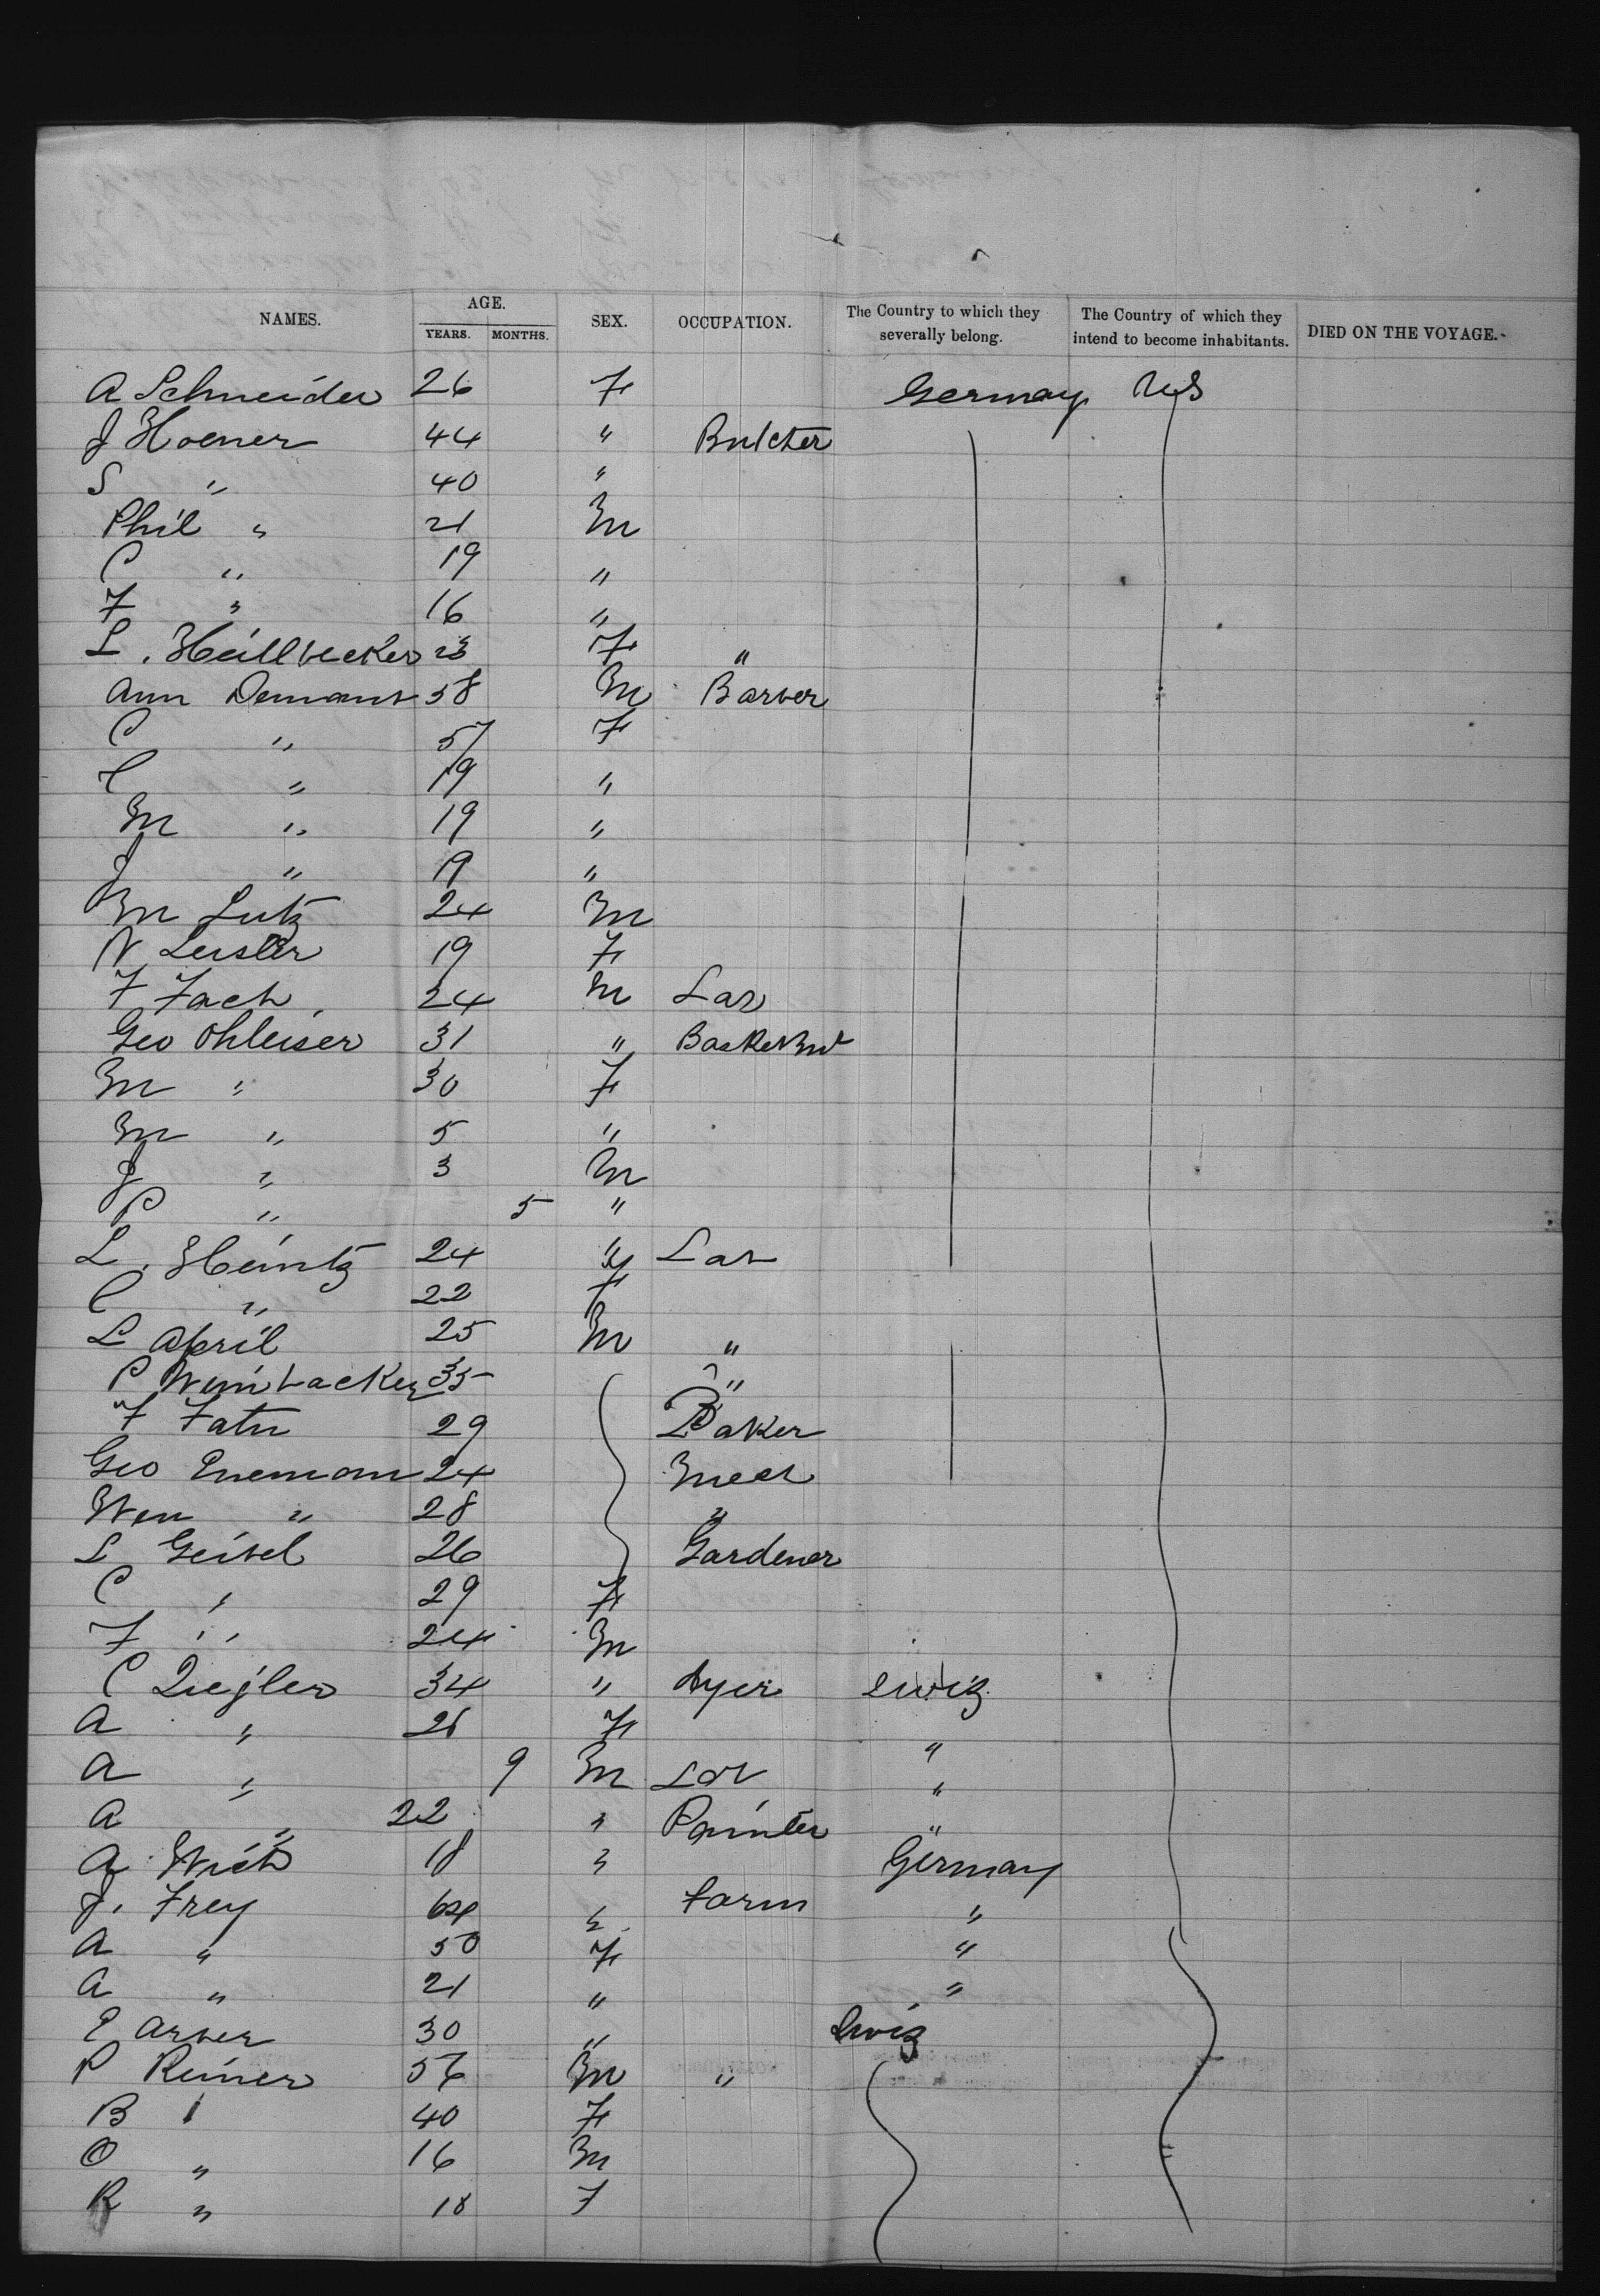 NAMES. AGE. YEARS. MONTHS. SEX. OCCUPATION. The Country to which they severally belong. The Country of which they intend to become inhabitants. DIED ON THE VOYAGE.
A Schneider 26 F Germany US
J Hoener 44 " Butcher
S " 40 "
Phil " 21 M
C " 19 "
F " 16 "
L. Heillbecker 23 F "
Ann Demant 58 M Barber
C " 57 F
C " 19 "
M " 19 "
J " 19 "
M Lutz 24 M
N Leisler 19 F
F Fach 24 M Lab
Geo Ohleiser 31 " Basket
M " 30 F
M " 5 "
J " 3 M
P " 5 "
L. Heintz 24 " Lab
C " 22 F
L April 25 M "
P Weinbacker 35 "
F 29 Baker
Geo Eneman 24 Mech
Wm " 28 "
L Geibel 26 Gardener
C " 29 F
F " 24 M
C Ziegler 34 " dyer swiz
A " 26 F "
A " 9 M Lab "
A " 22 " Painter "
A 18 " Germany
J. Frey 64 " farm "
A " 50 F "
A " 21 " "
E Arber 30 " Swiz
P Reiner 56 M "
B " 40 F
O " 16 M
R " 18 F